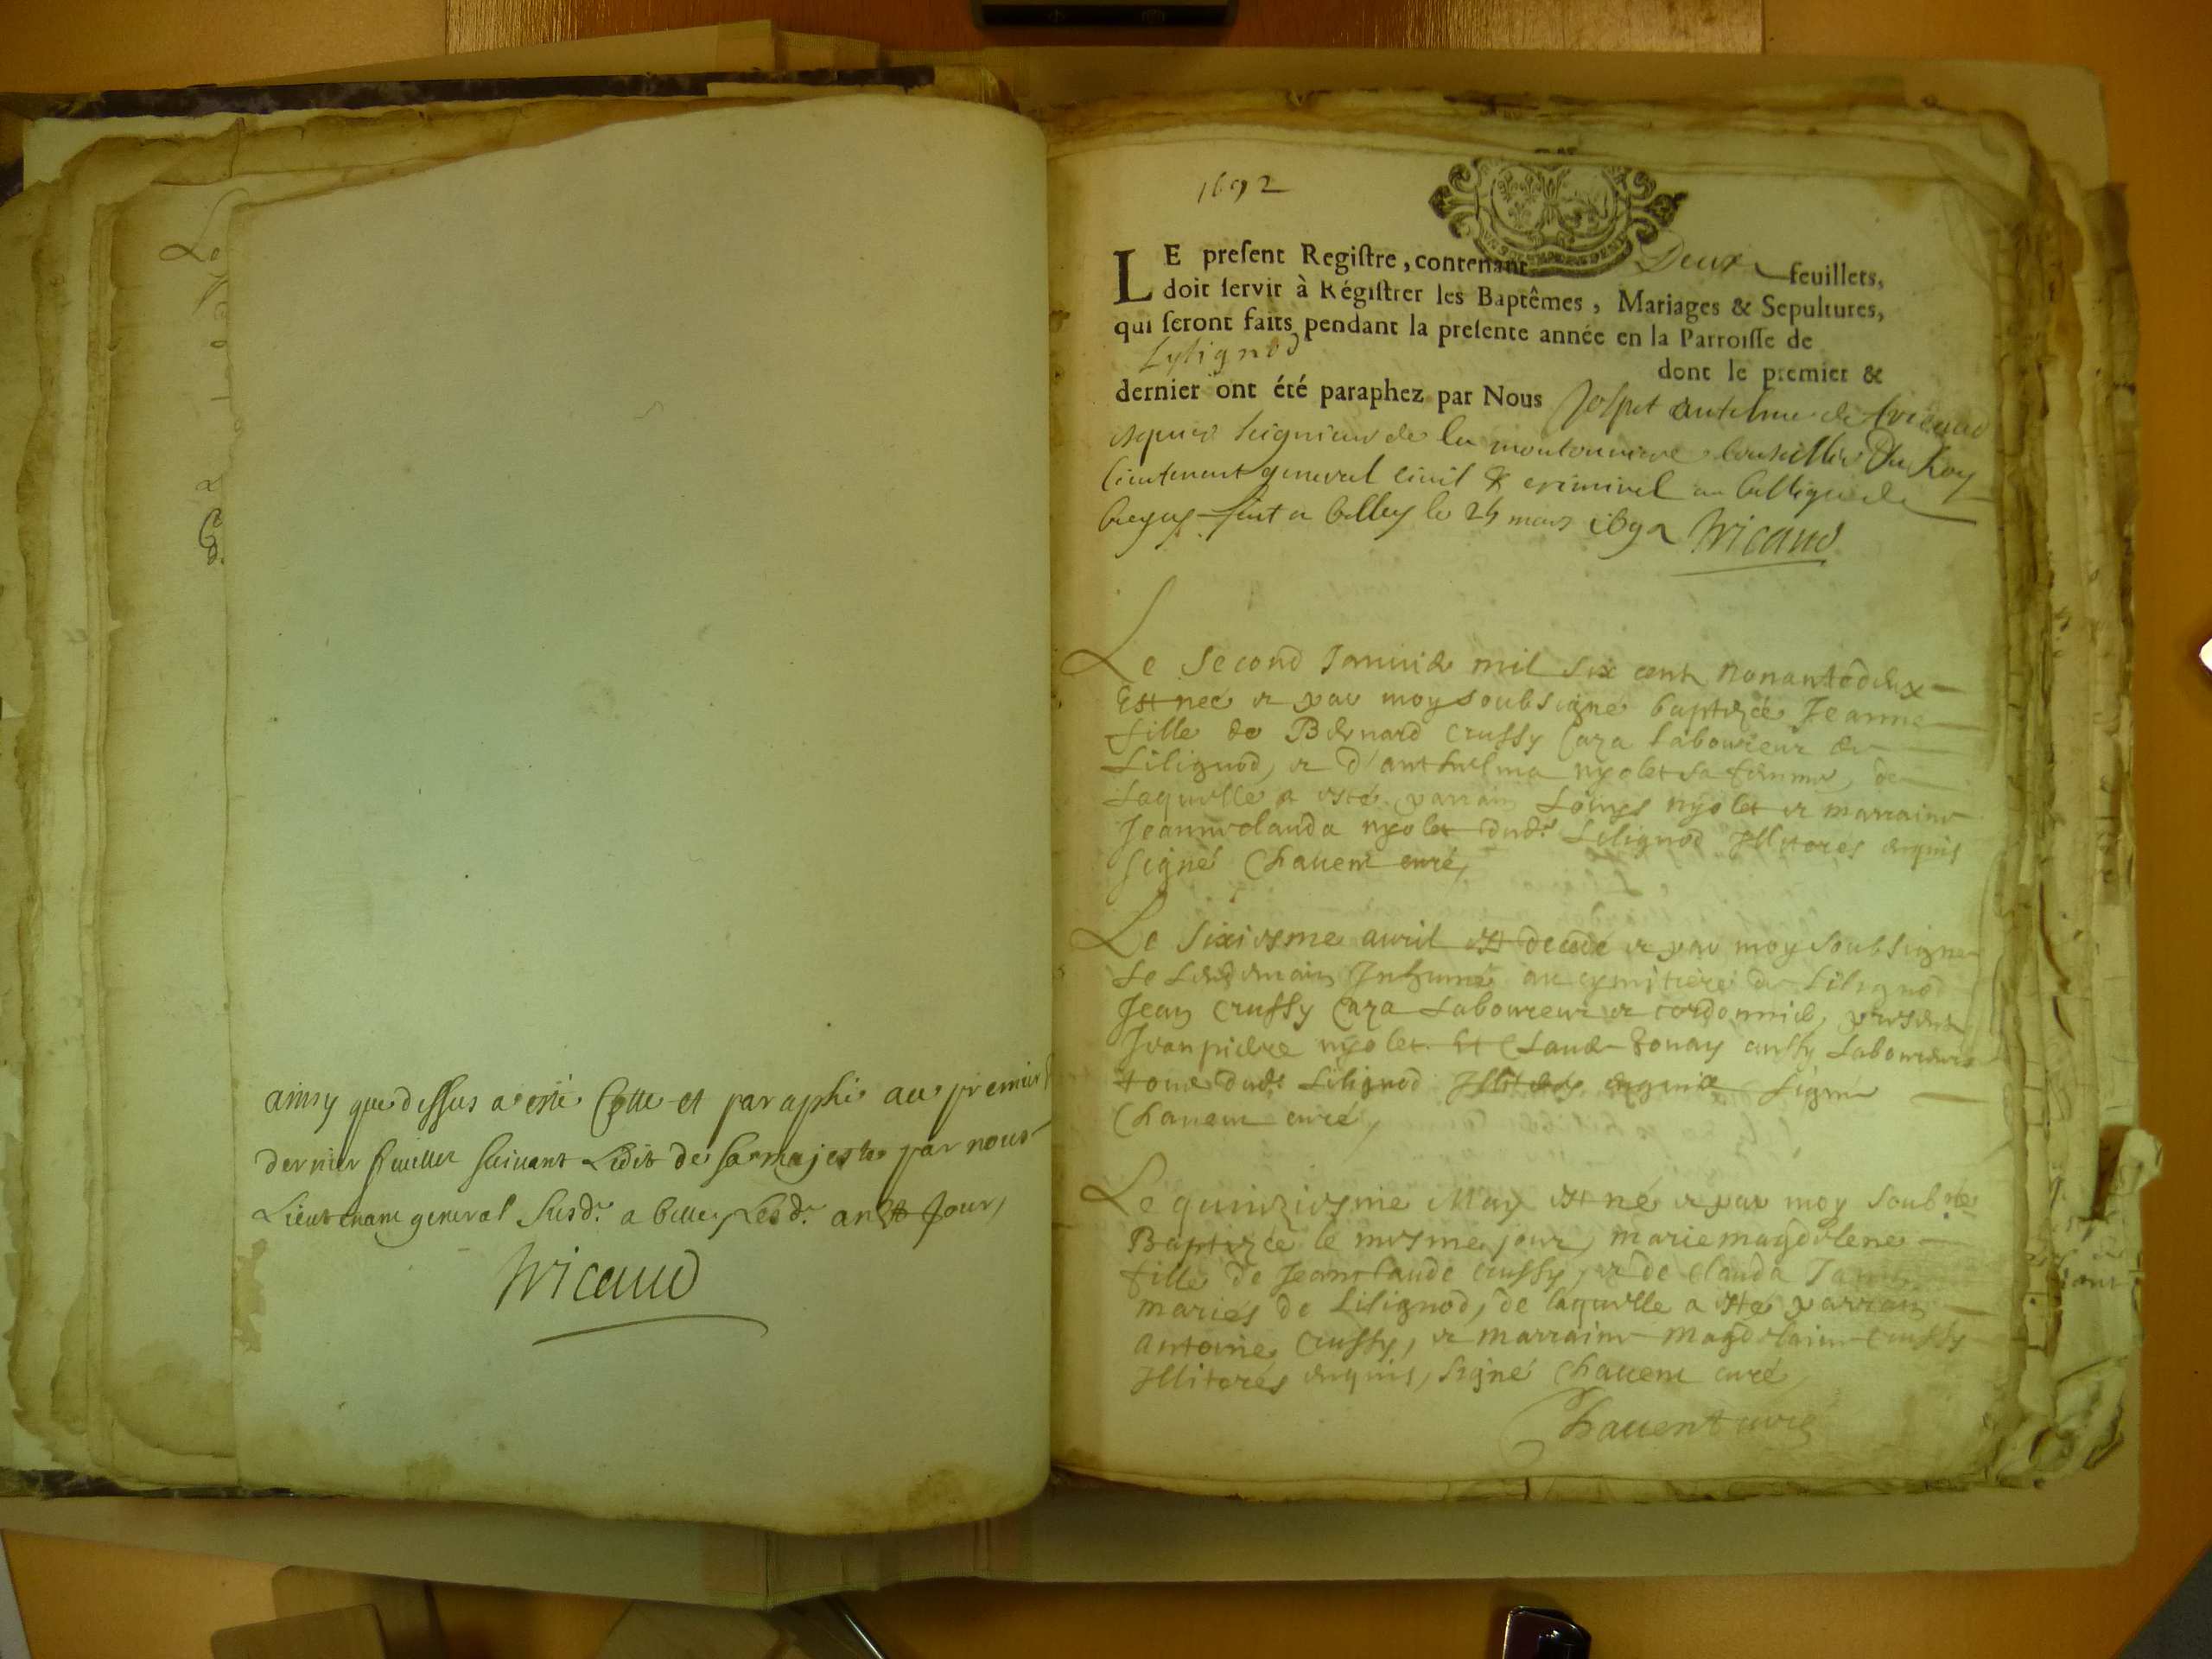 ainsy que dessus a esté Cotté et paraphé au premier &
dernier feuillet suivant Ledit de sa majesté par nous
Lieutenant general susd. a belley Lesd. an et Jour
Tricaud
1692
LE preſent Regiſtre, contenant Deux feuillets,
doit ſervir à Régiſtrer les Baptêmes, Mariages & Sepultures,
qui ſeront faits pendant la preſente année en la Parroiſſe de
Lylignod dont le premier &
dernier ont été paraphez par Nous Joseph antelme de Tricaud
seigneur de la conseiller Du Roy
lieutenant general civil & criminel au bailliage de
bugey fait a belley le 24 mars 1692 Tricaud
Le second Januier mil six cent nonantedeux
Est neé et par moy soubsigné baptizée Jeanne
fille de Bernard Crussy Caza Laboureur de
Lilignod, et d'anthelma nyolet sa femme, de
Laquelle a esté parrain Loüys nyolet et marraine
Jeanneclauda nyolet dud.t Lilignod Illiterés enquis
signé Chauent curé,
Le sixiesme auril est decedé et par moy soubsigné
Le Lendemain Inhumé au cymitiere de Lilignod
Jean Crussy Caza Laboureur et cordonnier, presents
Jeanpierre nyolet Et Claude aussy Laboureurs
tous dud.t Lilignod Illiterés enquis signé
Chauent curé,
Le quinziesme May est né et par moy soub.né
Baptizée le mesme jour, marie magdelene
fille de Jeanclaude Crussy, et de Clauda
mariés de Lilignod, de laquelle a esté parrain
Antoine Crussy, et marraine Magdelaine Crussy
Illiterés enquis, signé Chauent curé,
Chauent curé